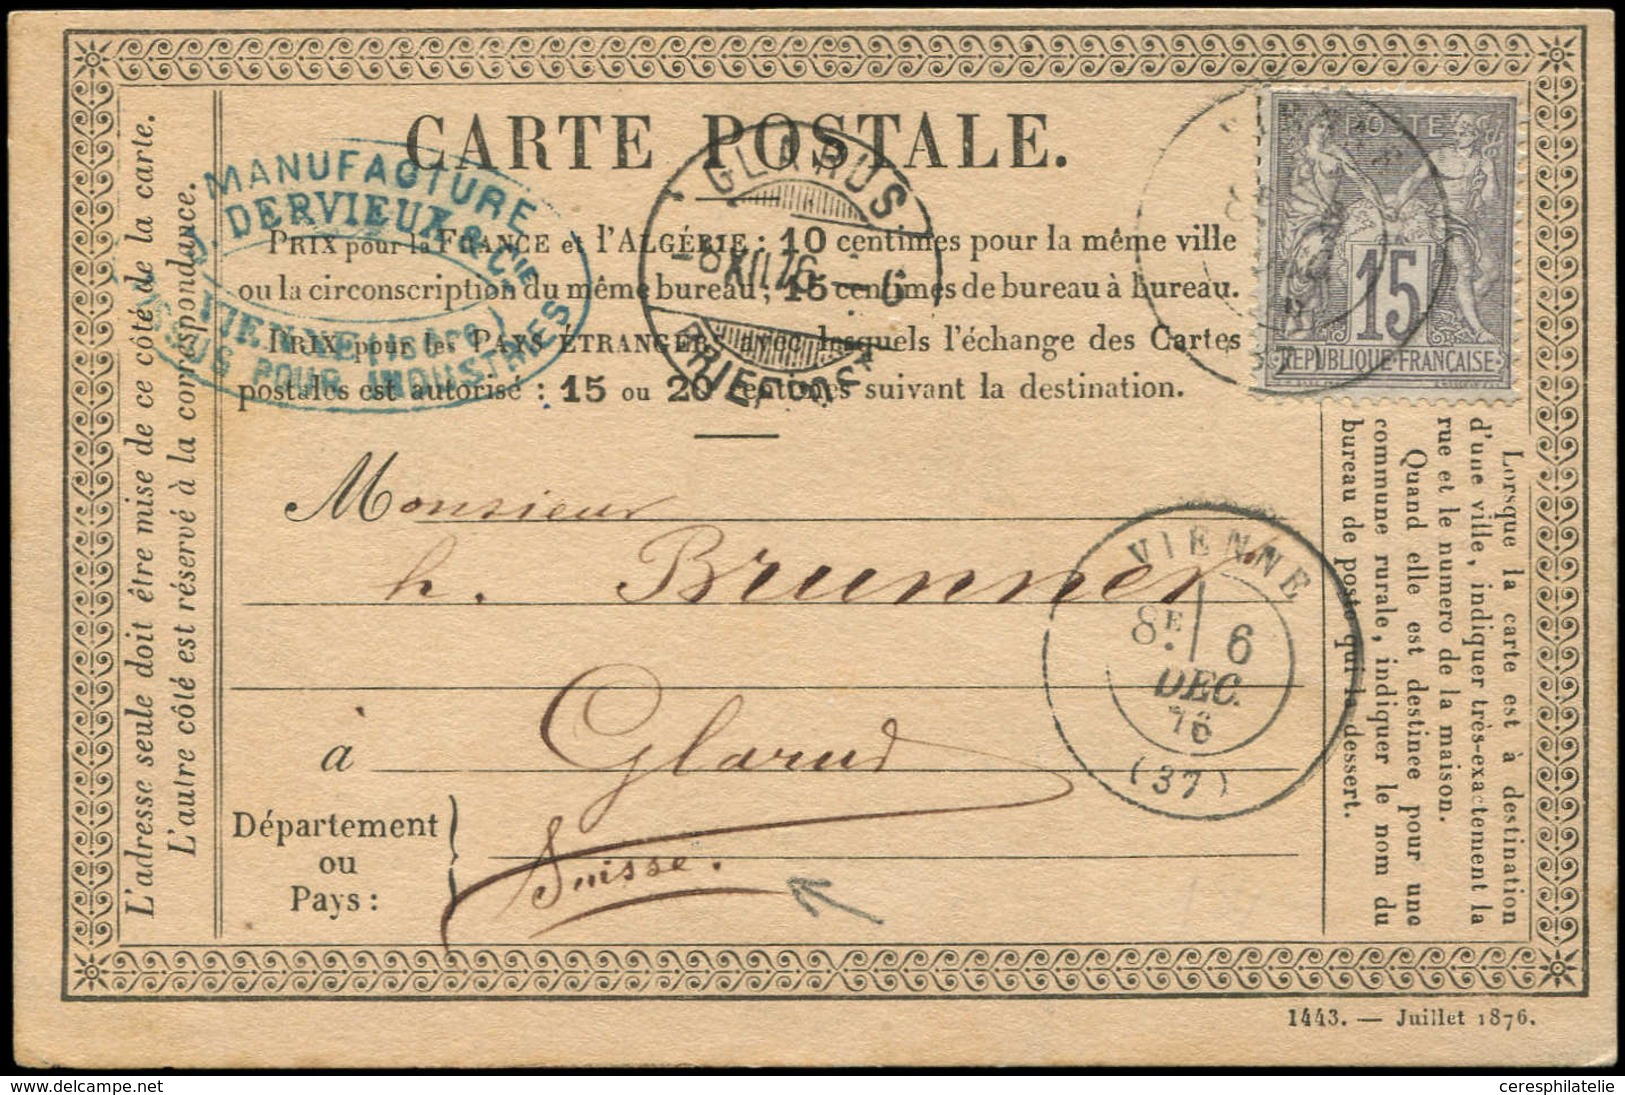 CARTE POSTALE.
MANUFACTURE
J. DERVIEUX & Cie
VIENNE (ISÈRE)
TISSUS POUR INDUSTRIES
GLARUS
-8 XII 76 - 6
BRIEFPOST
POSTE
15
REPUBLIQUE FRANÇAISE
PRIX pour la FRANCE et l'ALGÉRIE : 10 centimes pour la même ville
ou la circonscription du même bureau ; 15 centimes de bureau à bureau.
PRIX pour les PAYS ÉTRANGERS avec lesquels l'échange des Cartes
postales est autorisé : 15 ou 20 centimes suivant la destination.
L'adresse seule doit être mise de ce côté de la carte.
L'autre côté est réservé à la correspondance.
Monsieur
h. Brunner
à Glarus
Département
ou
Pays :
Suisse.
VIENNE
8E 6
DEC.
76
(37)
Lorsque la carte est à destination
d'une ville, indiquer très-exactement la
rue et le numero de la maison.
Quand elle est destinée pour une
commune rurale, indiquer le nom du
bureau de poste qui la dessert.
1443. — Juillet 1876.
delcampe.net
ceresphilatelie